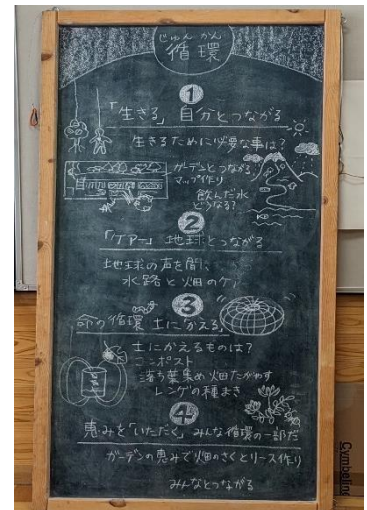 じゅんかん
循環
1
「生きる」自分とつながる
生きるために必要な事は?
ガーデンとつながる
マップ作り
飲んだ水
どうなる?
2
「ケアー」地球とつながる
地球の声を聞く
水路と畑のケア
3
命の循環 土にかえる
土にかえるものは?
コンポスト
落ち葉集め 畑たがやす
レンゲの種まき
4
恵みを「いただく」みんな循環の一部だ
ガーデンの恵みで畑のさくとリース作り
みんなとつながる
Cymbeline